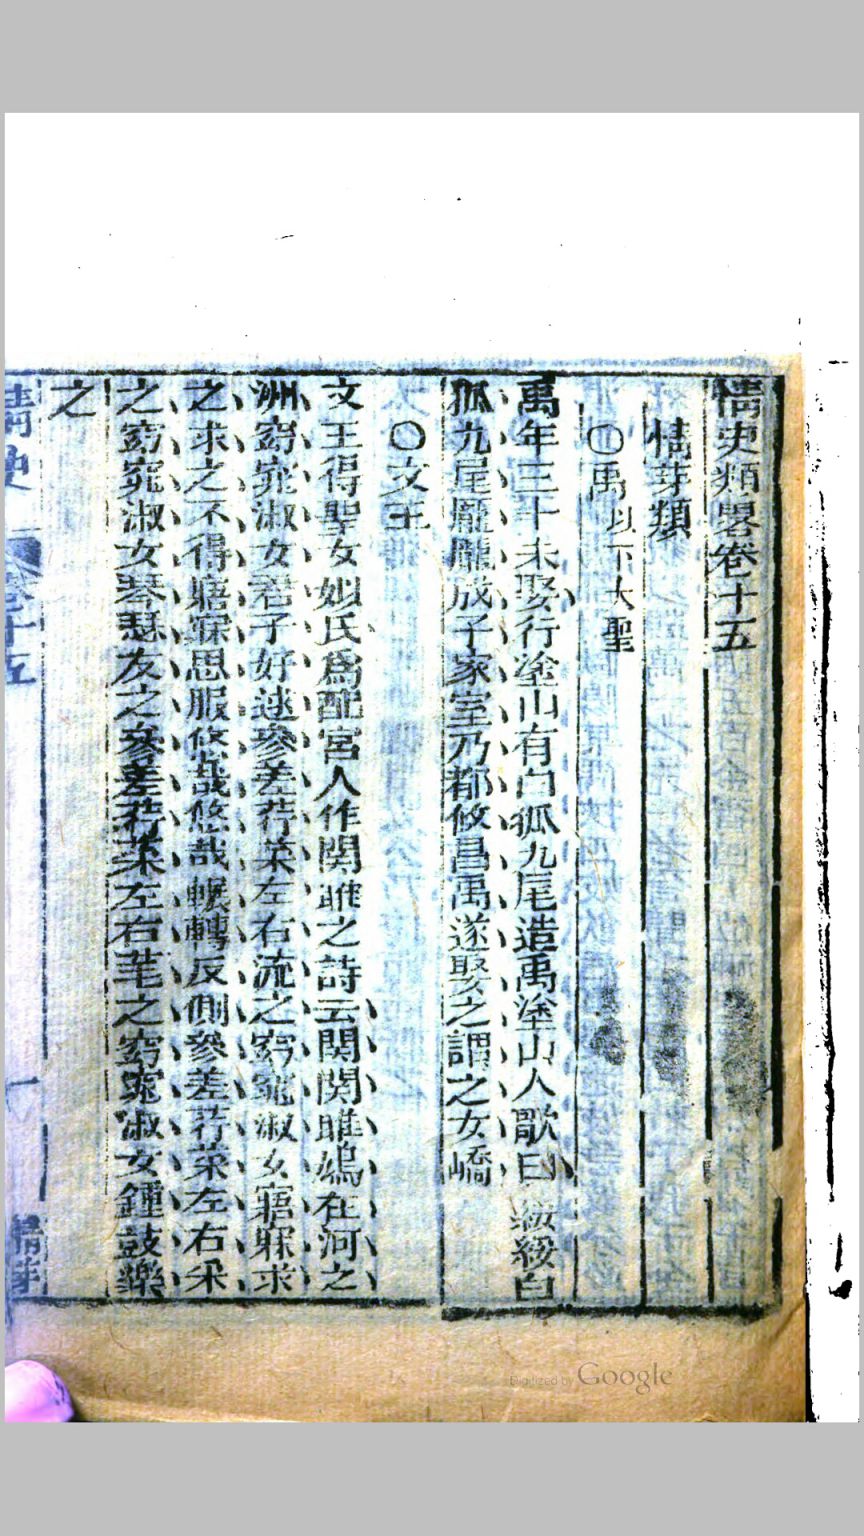 情史類畧卷十五
情芽類
〇禹以下大聖
禹年三十未娶行塗山有白狐九尾造禹塗山人歌曰綏綏白
狐九尾龐龐成子家室乃都攸昌禹遂娶之謂之女嬌
〇文王
文王得聖女姒氏爲配宮人作関雎之詩云関関雎鳩在河之
洲窈窕淑女君子好逑參差荇菜左右流之窈窕淑女寤寐求
之求之不得寤寐思服悠哉悠哉輾轉反側參差荇菜左右采
之窈窕淑女琴瑟友之參差荇菜左右芼之窈窕淑女鍾鼓樂
之
情史
卷十五
一
情芽
Digitized by Google